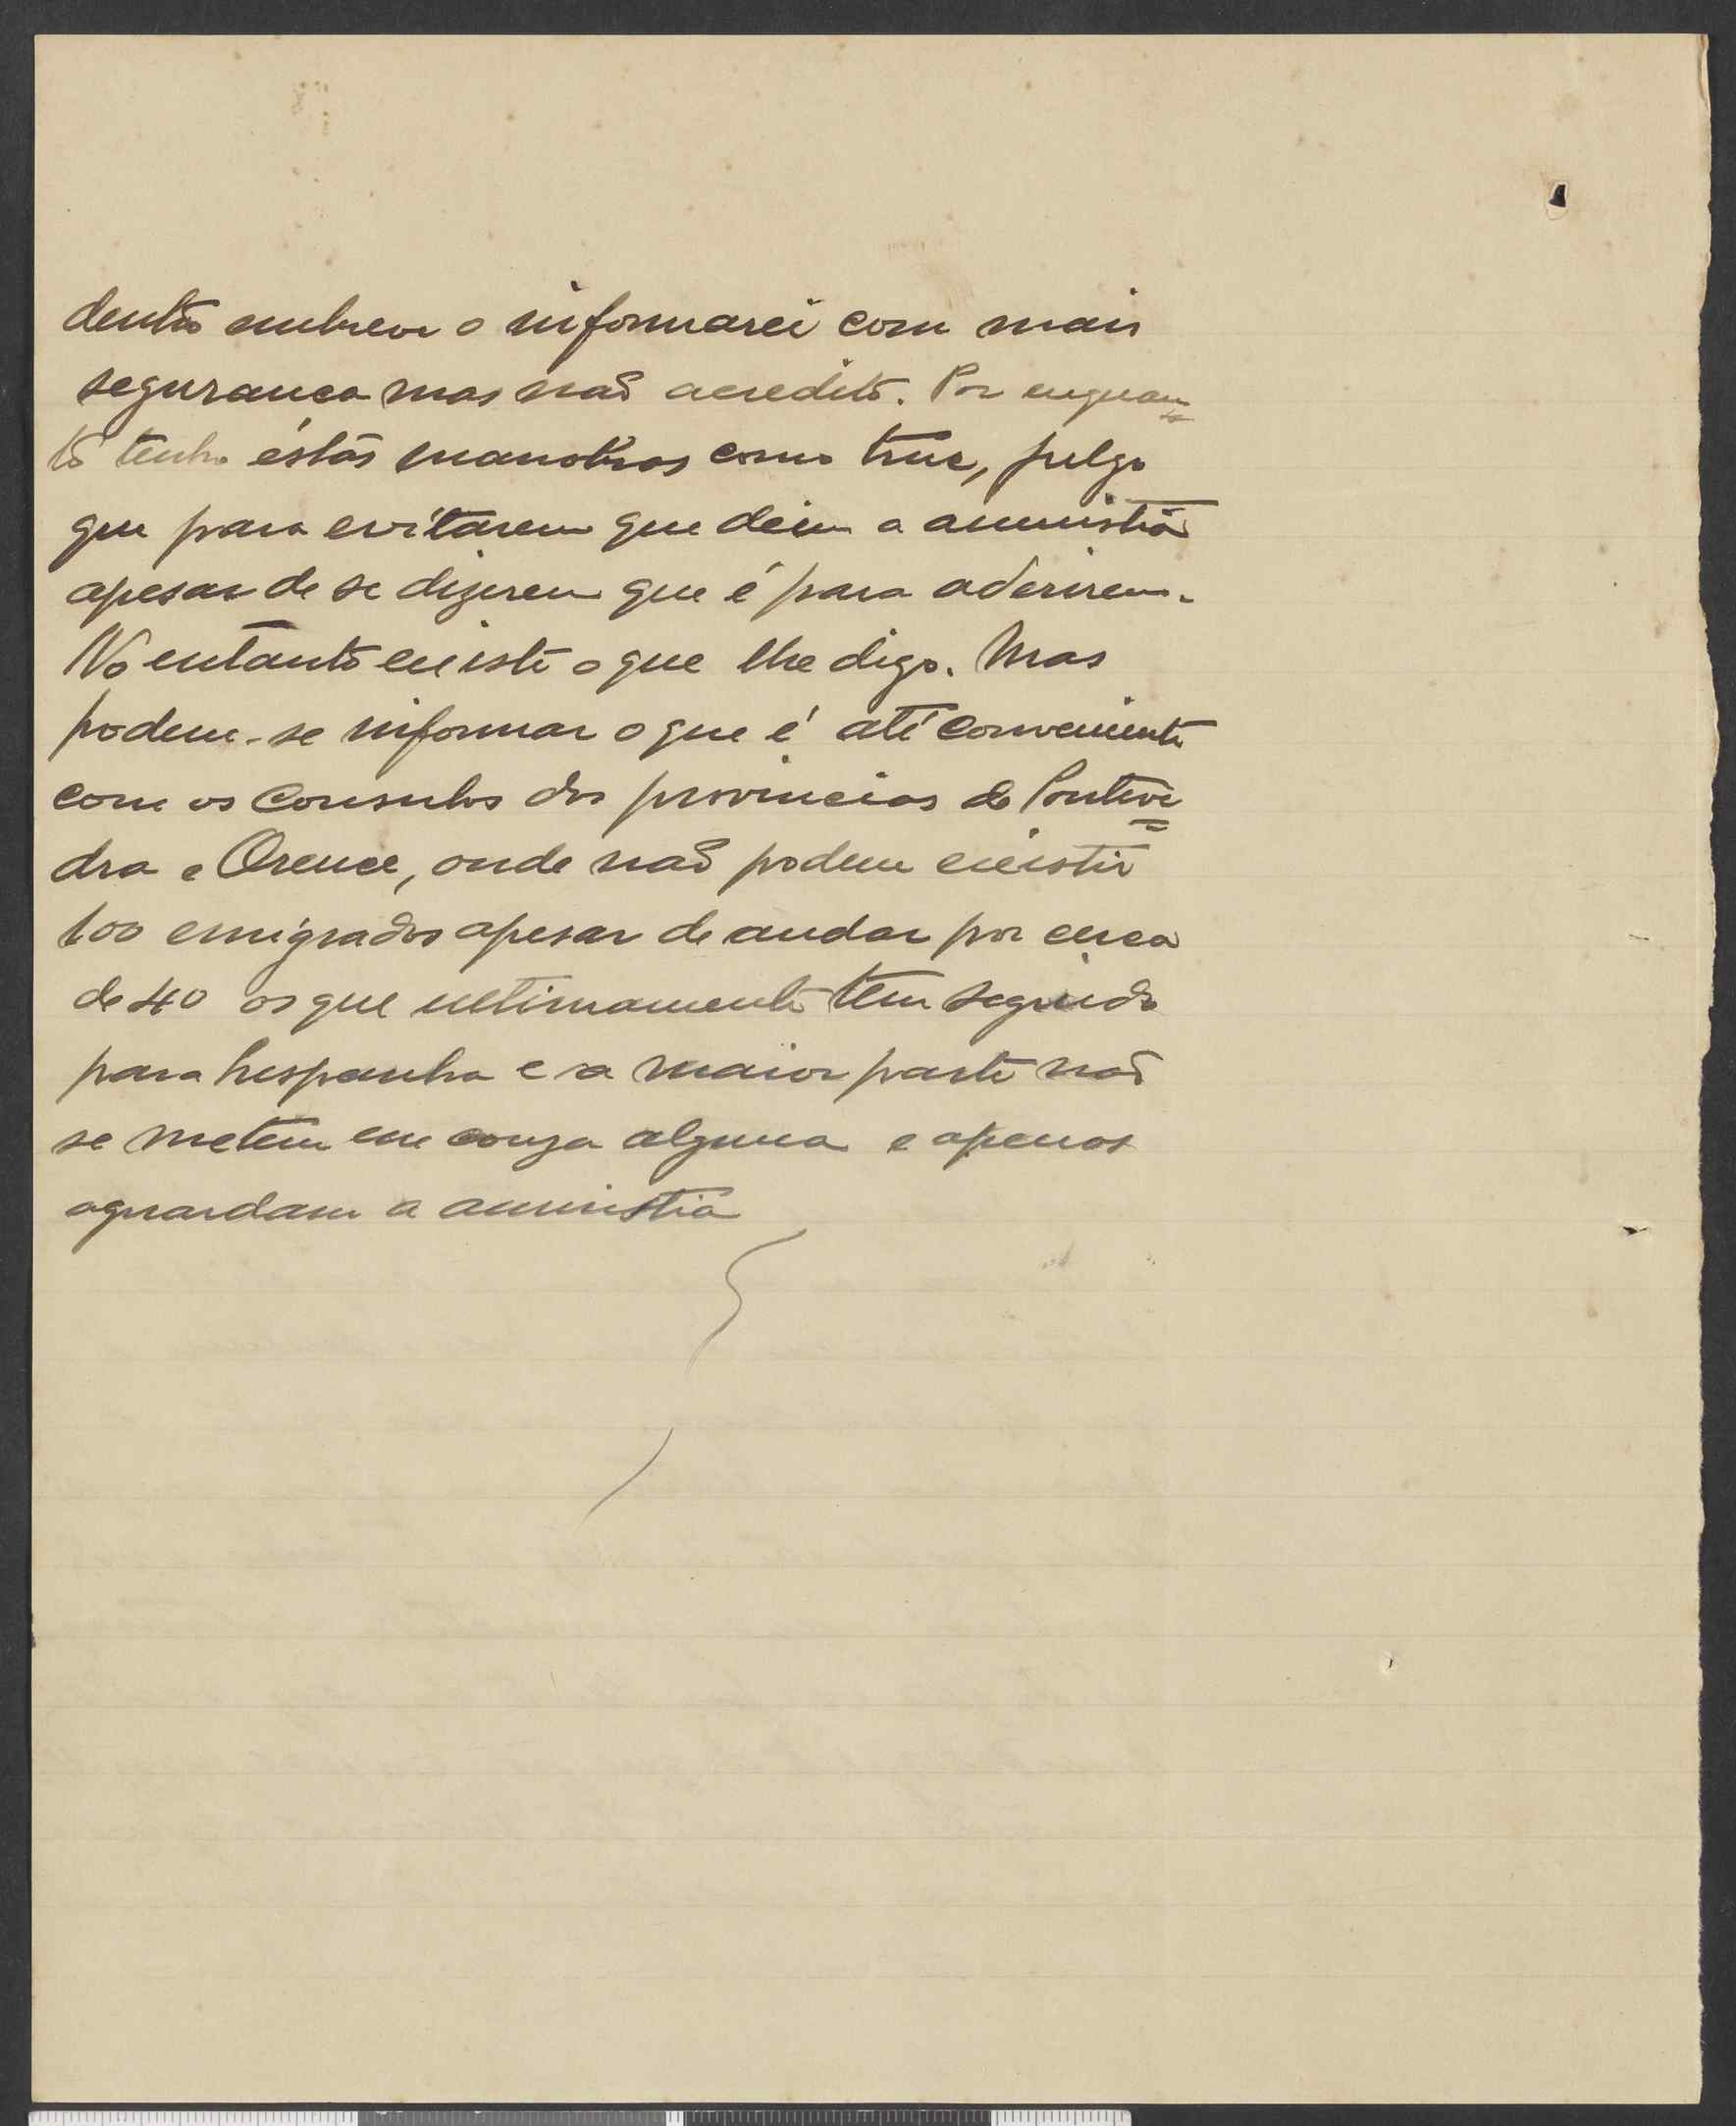 dentro embreve o informarei com mais
seguranca mas naõ acredito. Por enquan=
to tenho éstas manobras como truc, julgo
que para evitarem que deim a amnistia
apesar de se dizerem que é para aderirem.
No entanto existe o que lhe digo. Mas
podem-se informar o que é até conveniente
com os Consules das provincias de Ponteve=
dra e Orence, onde naõ podem existir
100 emigrados apesar de andar por cerca
de 40 os que ultimamente tem seguido
para hespanha e a maior parte naõ
se metem em couza alguma e apenas
aguardam a amnistia